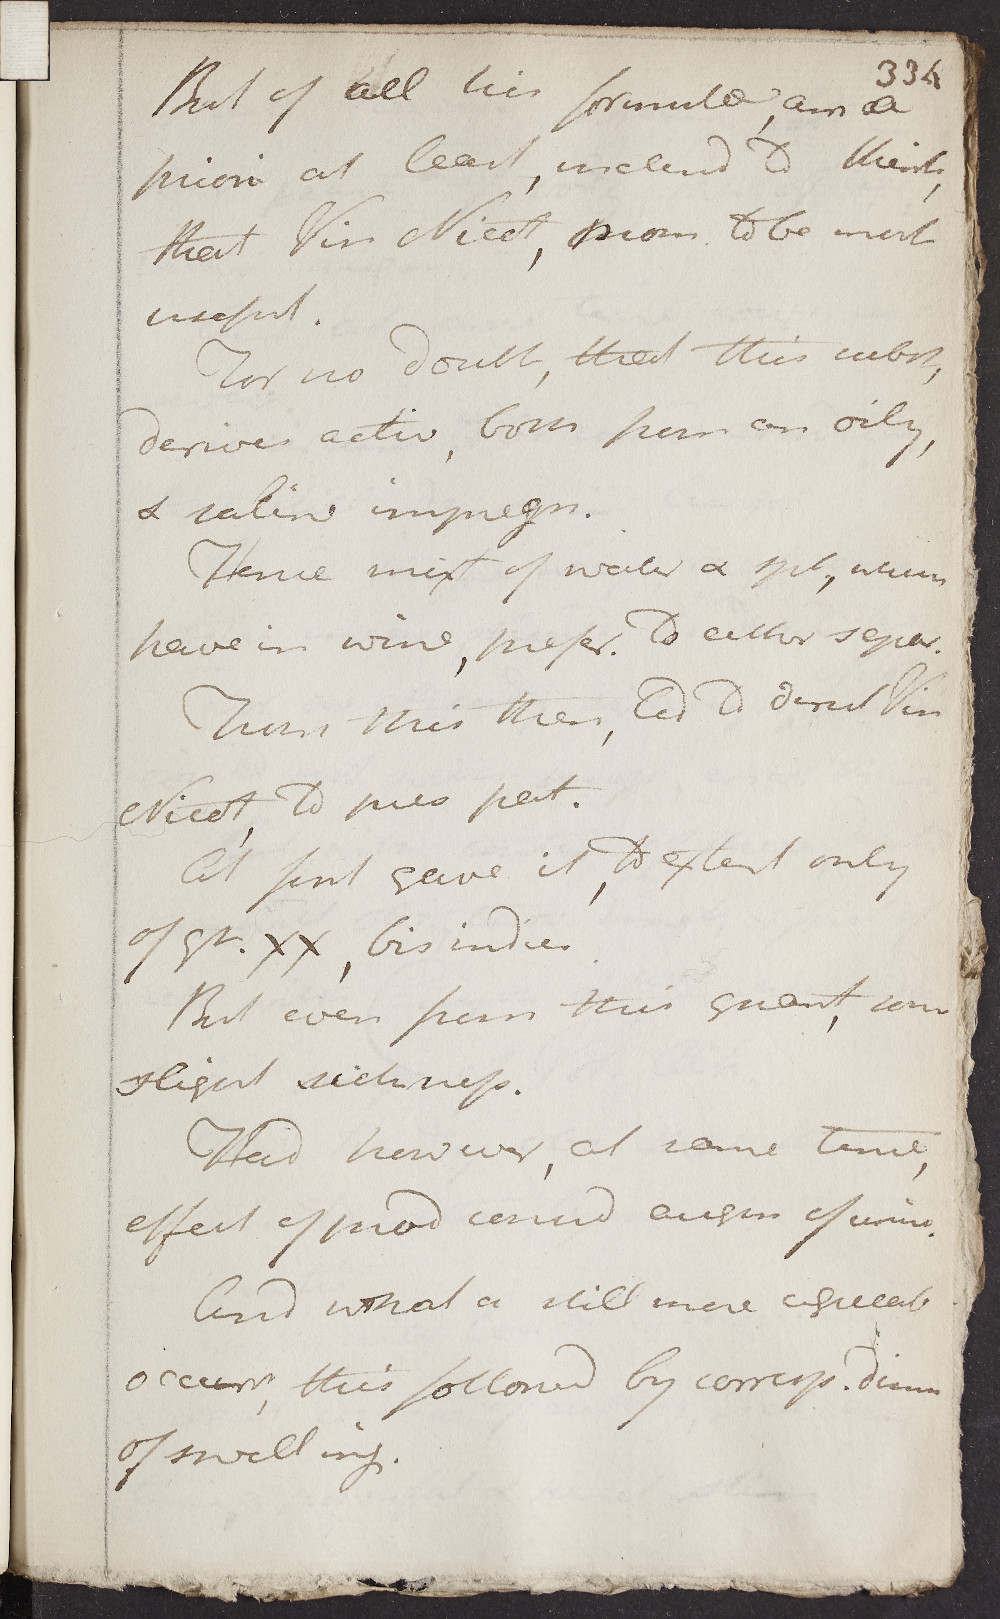 334
But of all his formulæ, am a
priori at least, inclind to think,
that Vin Nicot, prom to be most
useful.
For no doubt, that this subst,
derives activ, both from an oily,
& saline impregn.
Hence mixt of water & spt, which
have in wine, prefer. to either separ.
From this then, led to direct Vin
Nicot, to pres pat.
At first gave it, to extent only
of gt. XX, bis indies
But even from this quant, som
slight sickness.
Had however, at same time,
effect of prod consid augm of urine.
And what a still more agreeab
occurr, this followd by corresp. dimin
of swelling.